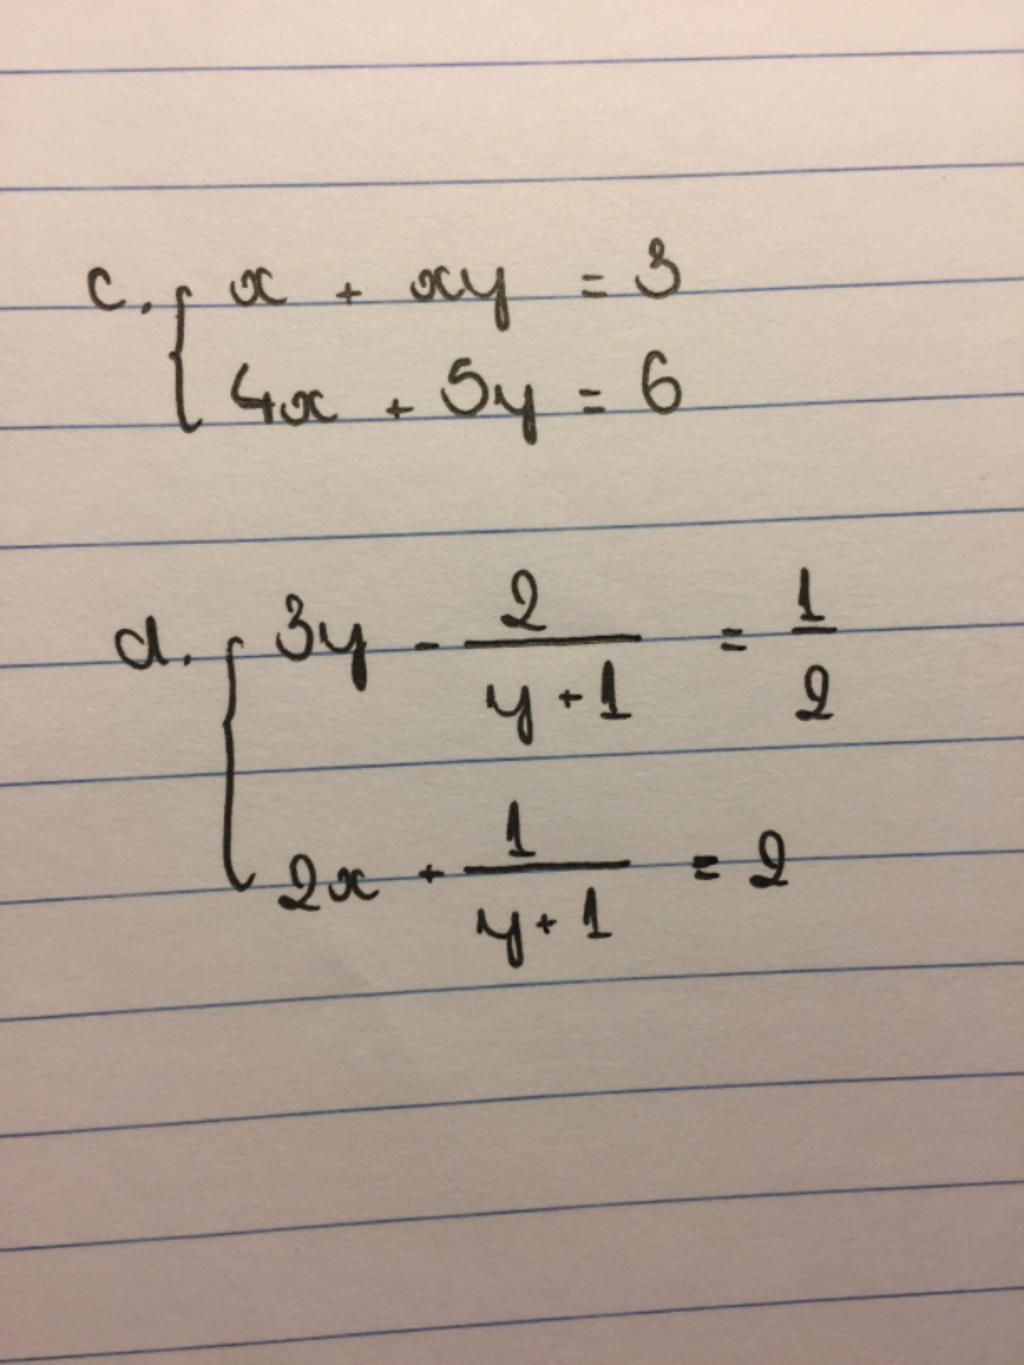 c. { x + xy = 3
4x + 5y = 6
d. { 3y - 2/(y + 1) = 1/2
2x + 1/(y + 1) = 2